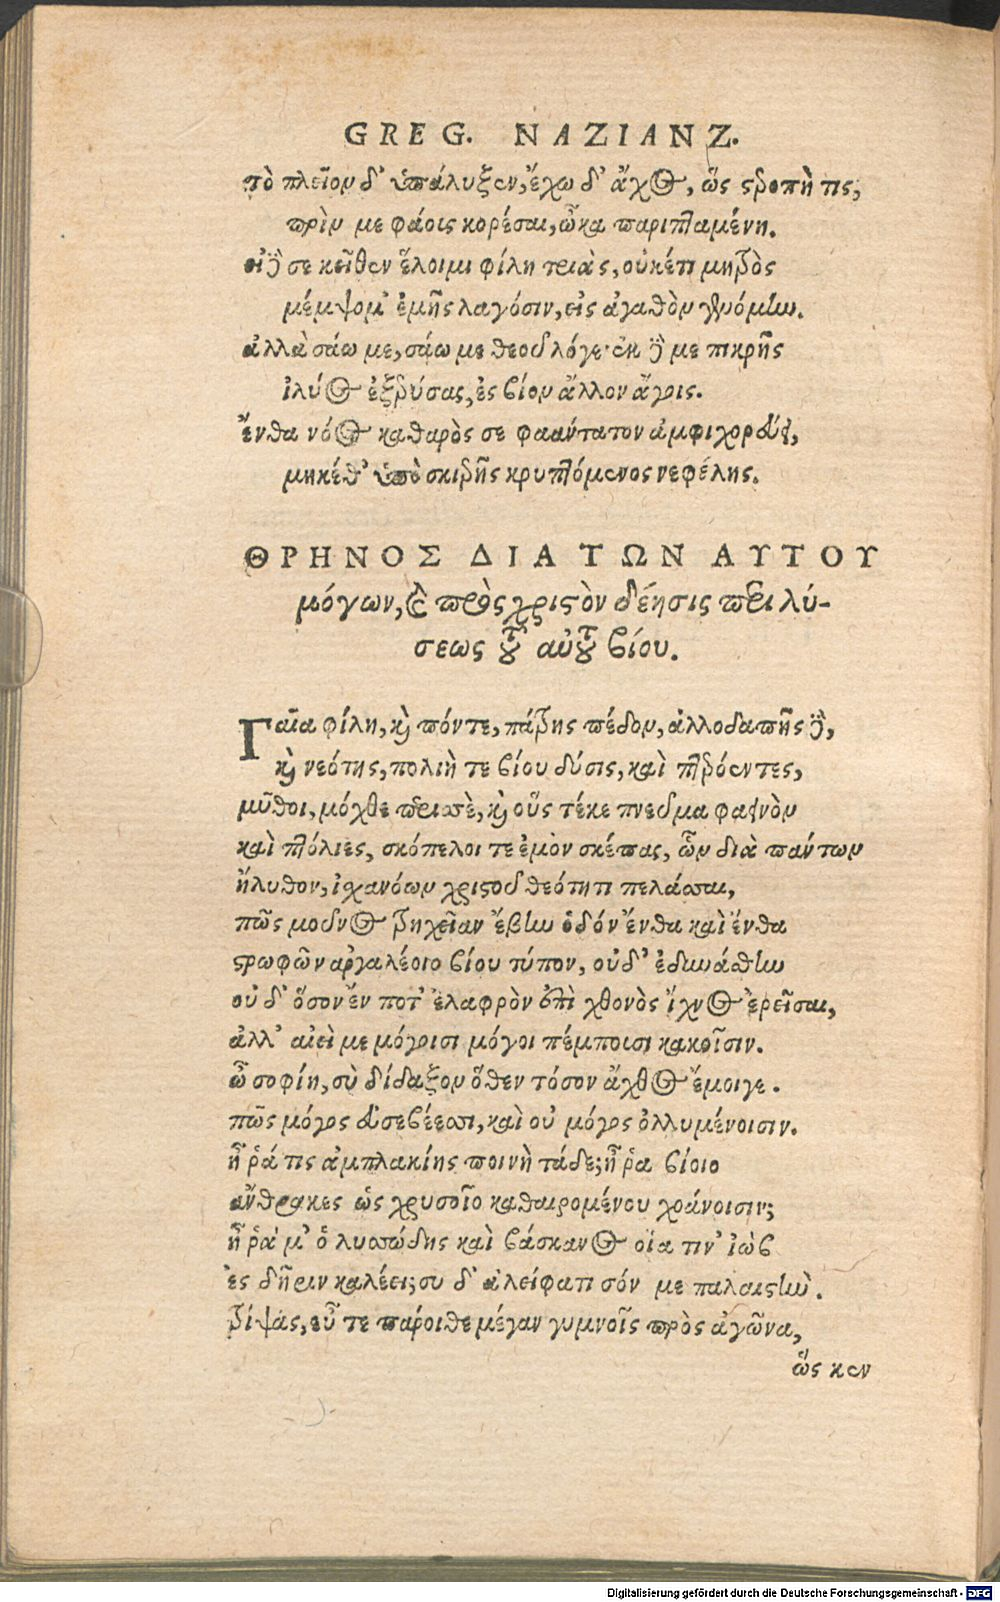 GREG. NAZIANZ.
τὸ πλεῖον δ' ὑπάλυξεν, ἔχω δ' ἄχος, ὥς ἀστροπή τις,
πρίν με φάοις κορέσαι, ὦκα παριπταμένη.
εἰ γὸ σε κεῖθεν ἕλοιμι φίλη τριὰς, οὐκέτι μητρὸς
μέμψομ' ἐμῆς λαγόσιν, εἰς ἀγαθὸν γενόμην.
ἀλλὰ σάω με, σάω με θεοῦ λόγε· ἐκ δέ με πικρῆς
ἰλύος ἐξερύσας, ἐς βίον ἄλλον ἄγοις.
ἔνθα νόος καθαρὸς σε φαάντατον ἀμφιχορεύει,
μηκέθ' ὑπὸ σκιερῆς κρυπτόμενος νεφέλης.
ΘΡΗΝΟΣ ΔΙΑ ΤΩΝ ΑΥΤΟΥ
μόγων, καὶ πρὸς χριστὸν δέησις περὶ λύ-
σεως τοῦ αὐτοῦ βίου.
Γαῖα φίλη, καὶ πόντε, πάτρης πέδον, ἀλλοδαπῆς τε,
καὶ νεότης, πολιή τε βίου δύσις, καὶ πτερόεντες,
μῦθοι, μόχθε περισσὲ, καὶ οὓς τέκε πνεῦμα φαεινὸν
καὶ πτόλιες, σκόπελοι τε ἐμὸν σκέπας, ὧν διὰ πάντων
ἤλυθον, ἰχανόων χριστοῦ θεότητι πελάσσαι,
πῶς μοῦνος τρηχεῖαν ἔβην ὁδόν ἔνθα καὶ ἔνθα
στρωφῶν ἀργαλέοιο βίου τύπον, οὐδ' ἐδυνάσθην
οὐ δ' ὅσον ἕν ποτ' ἐλαφρὸν ἐπὶ χθονὸς ἴχνος ἐρεῖσαι,
ἀλλ' αἰεί με μόγοισι μόγοι πέμπουσι κακοῖσιν.
ὦ σοφίη, σὺ δίδαξον ὅθεν τόσον ἄχθος ἔμοιγε.
πῶς μόγος εὐσεβέεσσι, καὶ οὐ μόγος ὀλλυμένοισιν.
ἦ ῥά τις ἀμπλακίης ποινὴ τάδε; ἦ ῥα βίοιο
ἄνθρακες ὡς χρυσοῖο καθαιρομένου χοάνοισιν;
ἦ ῥά μ' ὁ λυσσώδης καὶ βάσκανος οἷα τιν' ἰὼβ
ἐς δῆριν καλέει; συ δ' ἀλείφατι σόν με παλαιστὴν.
τρίψας, εὖ τε πάροιθε μέγαν γυμνοῖς πρὸς ἀγῶνα,
ὥς κεν
Digitalisierung gefördert durch die Deutsche Forschungsgemeinschaft - DFG